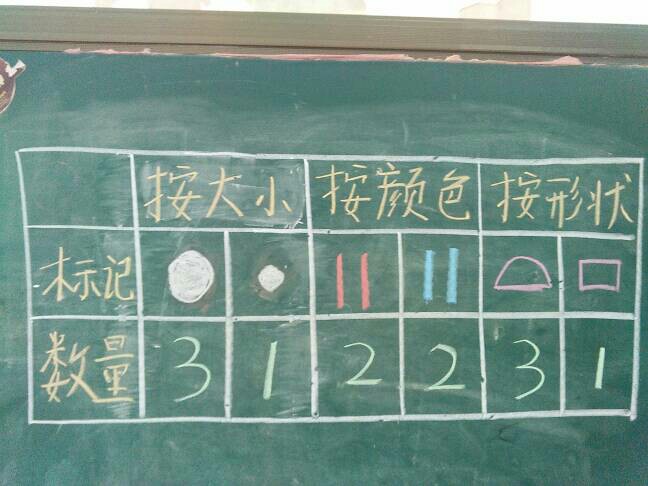 按大小 按颜色 按形状
标记
数量 3 1 2 2 3 1